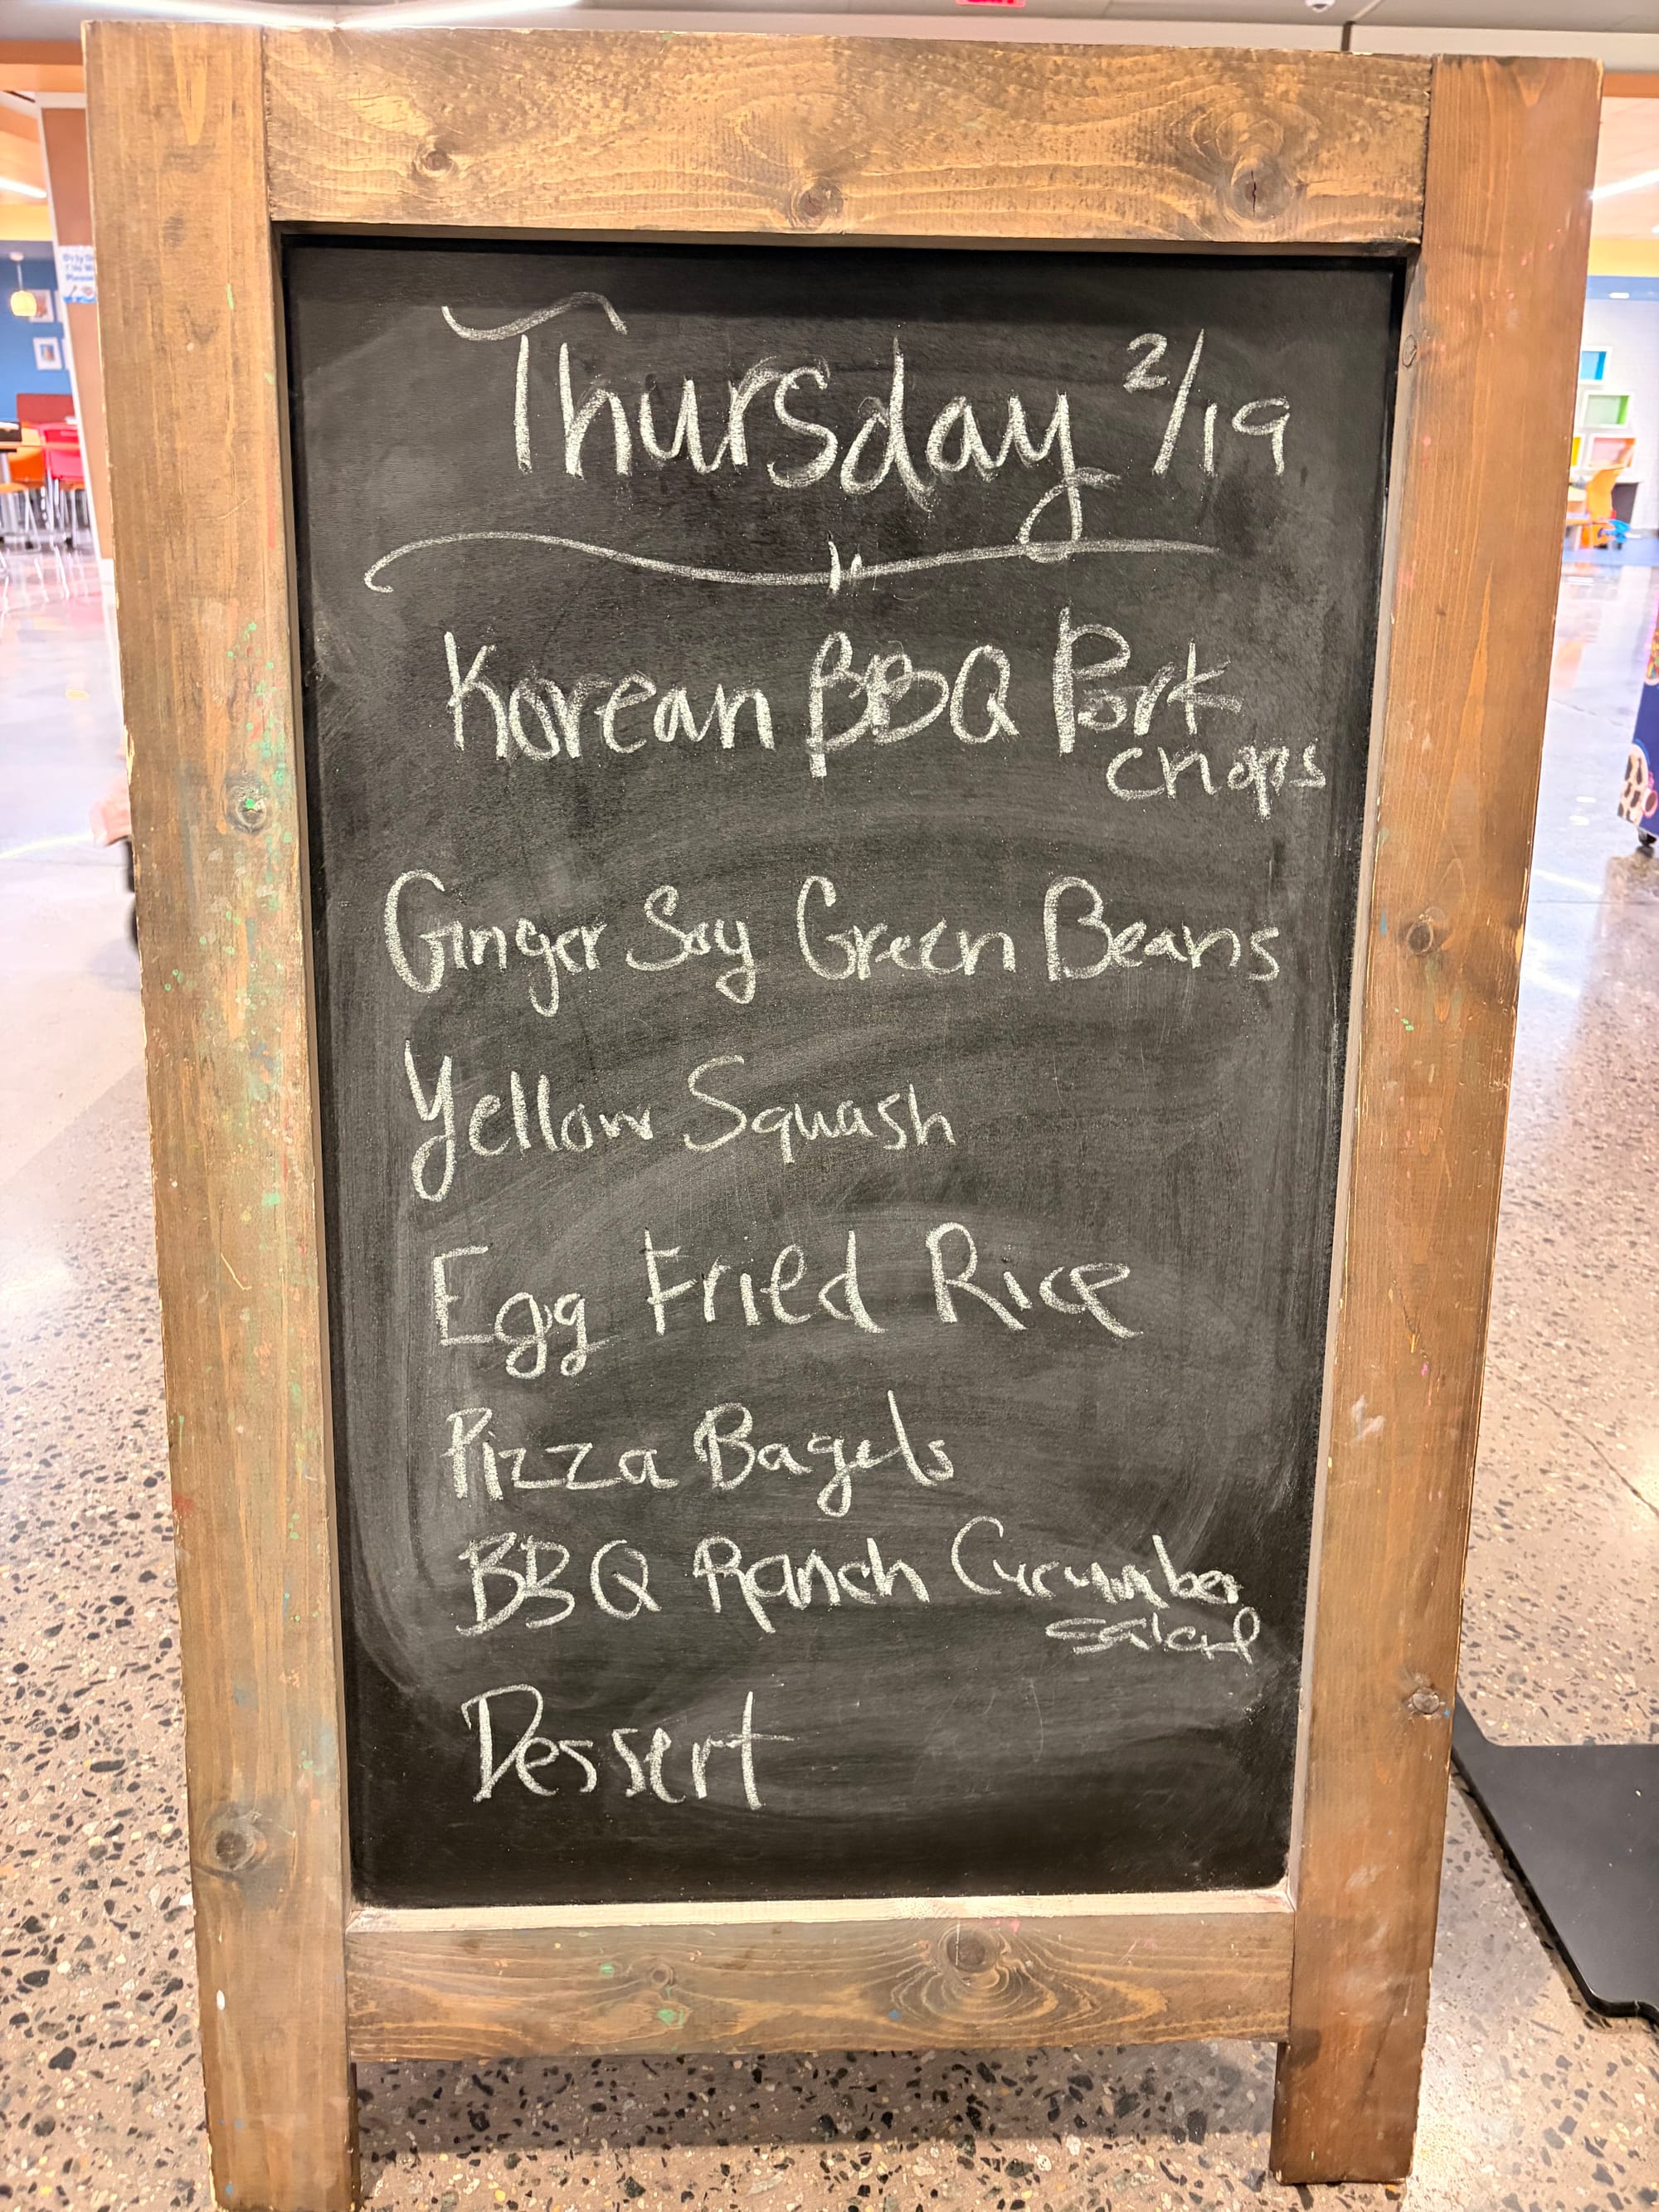 Thursday 2/19
Korean BBQ Pork
chops
Ginger Soy Green Beans
Yellow Squash
Egg Fried Rice
Pizza Bagels
BBQ Ranch Cucumber
salad
Dessert